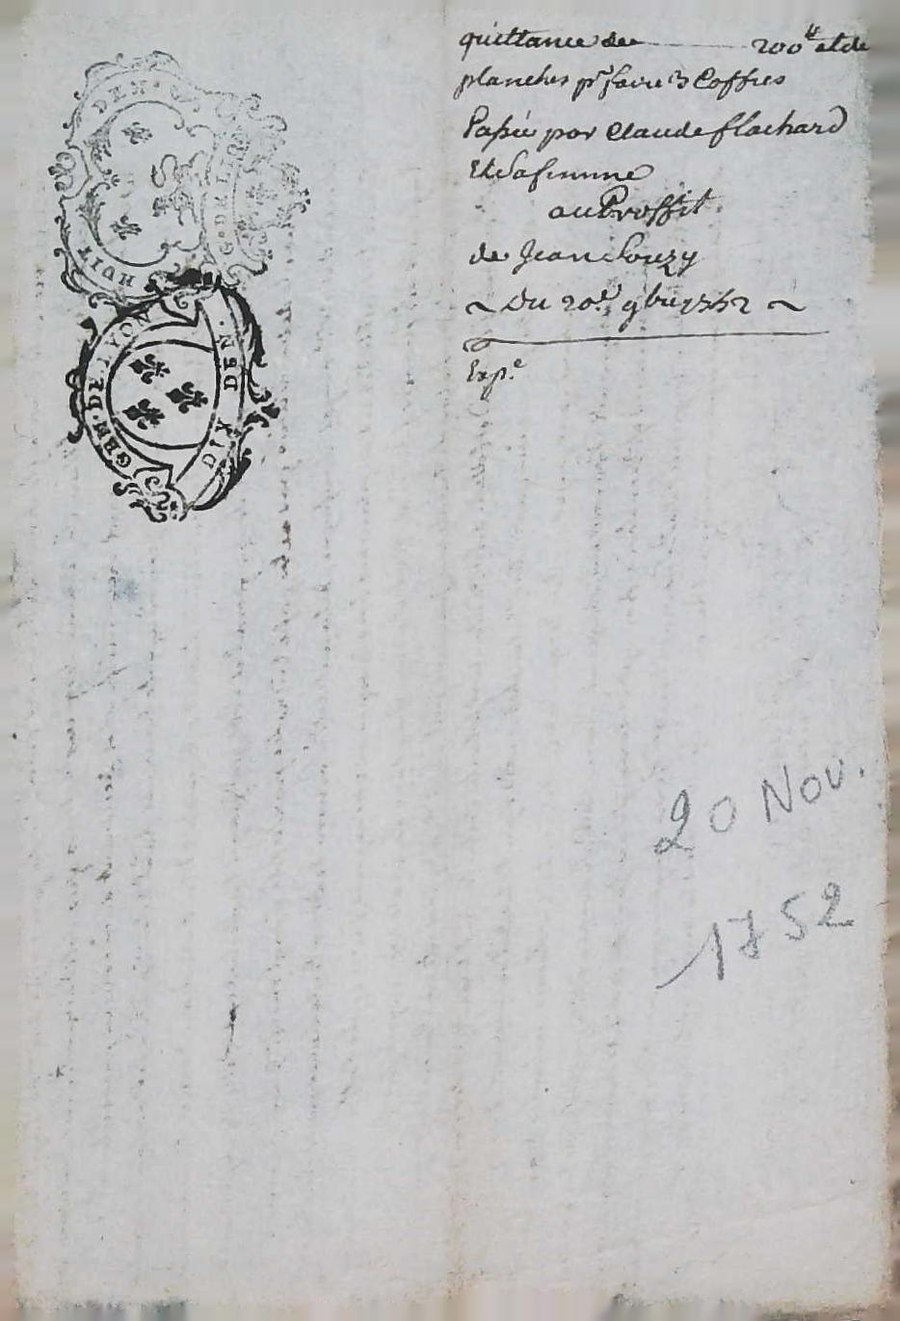 quittance de 200 ᵗᵗ et de
planches pʳ faire 3 Coffres
Passée por Claude flachard
Et Sa femme
au Proffit
de Jean Souzy
~ Du 20ᵉ 9bre 1752 ~
Exp.ᵉ
HUIT DEN. G. DE LYON
GEN. DE LYON
DIX DEN.
20 Nov.
1752